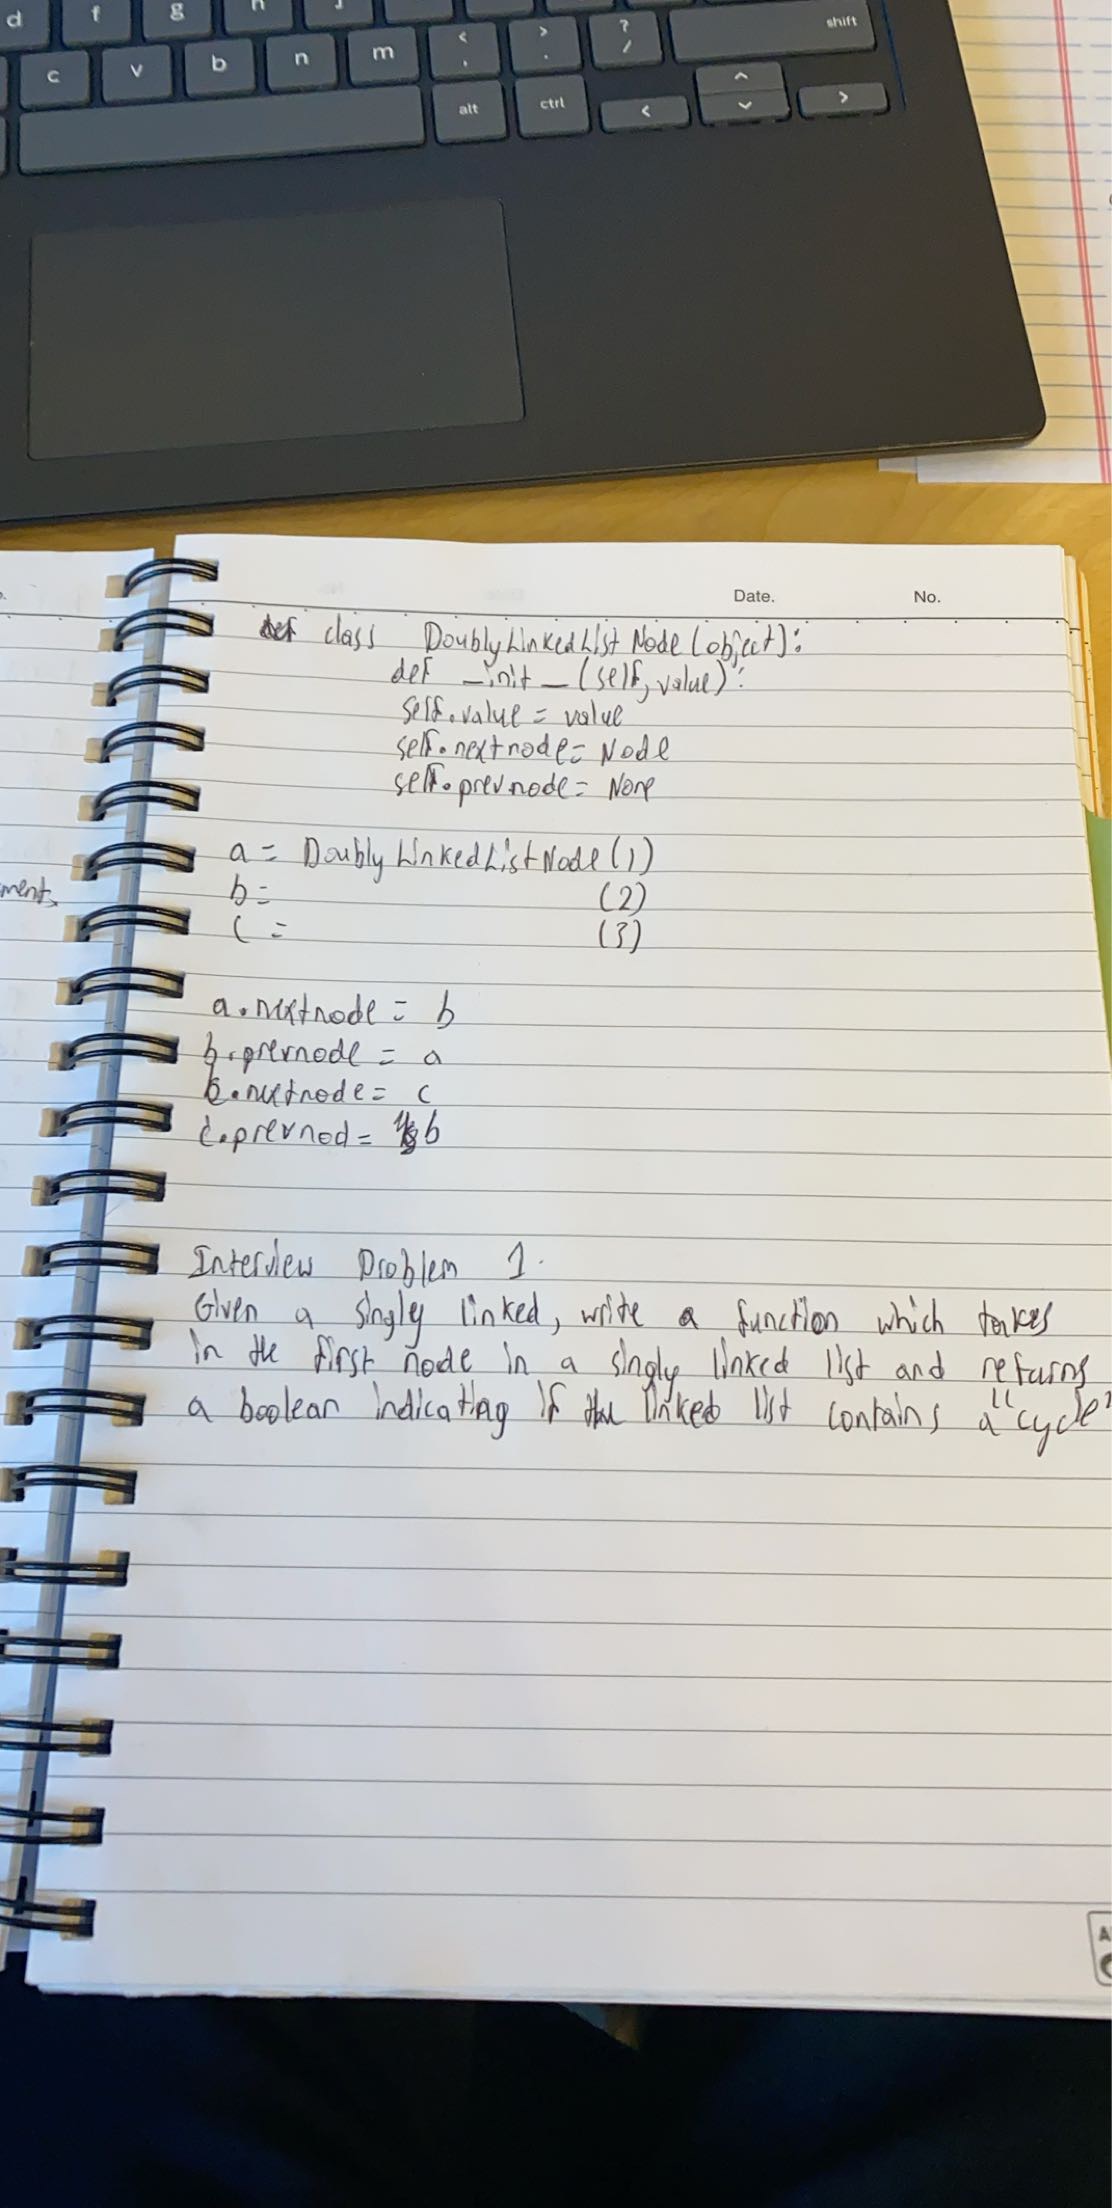 d f g h J
shift
c v b n m < , > . ? /
alt ctrl < ^ >
Date. No.
def class DoublyLinkedListNode(object):
def _init_(self, value):
self.value = value
self.nextnode = Node
self.prevnode = None
a = DoublyLinkedListNode(1)
ment,
b = (2)
c = (3)
a.nextnode = b
b.prevnode = a
b.nextnode = c
c.prevnod = b
Interview Problem 1.
Given a singly linked, write a function which takes
in the first node in a singly linked list and returns
a boolean indicating if the linked list contains a "cycle"